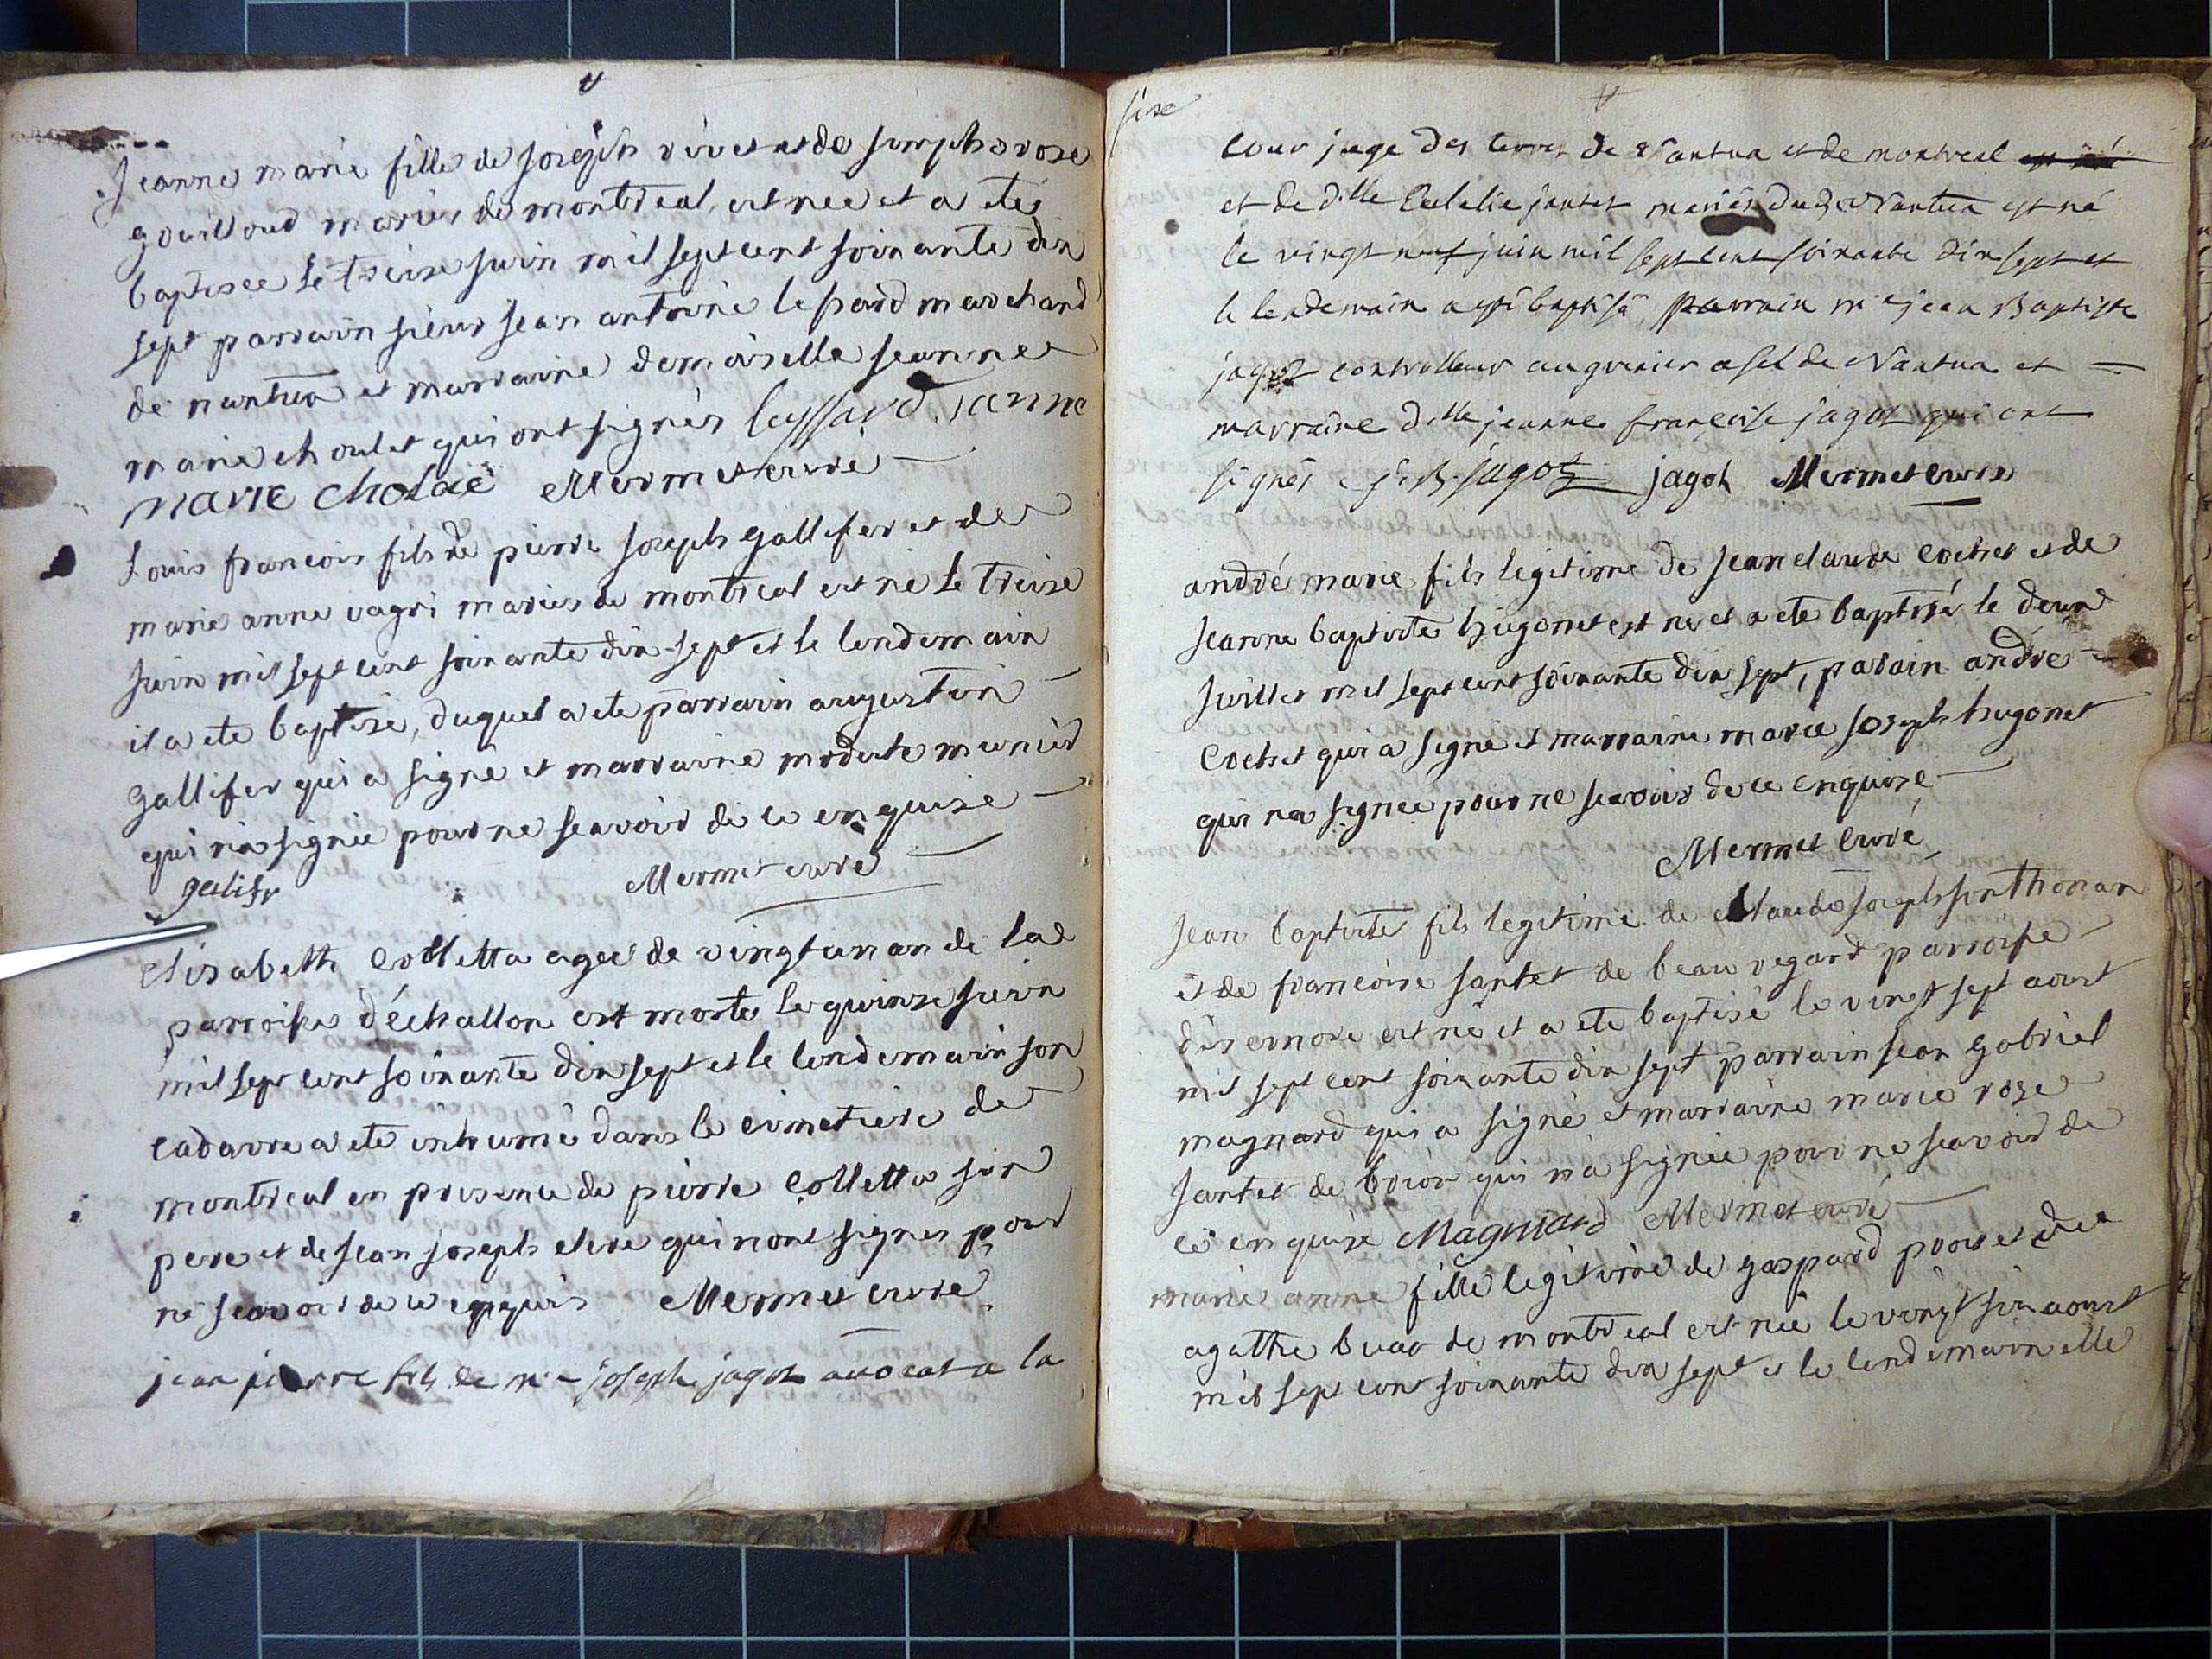 Jeanne marie fille de joseph vivet et de simphorose
gouilloud mariés de montreal, est neé et a eté
baptisee le treise juin mil sept cent soixante dix
sept parrain sieur jean antoine le pard marchand
de nantua et marraine demoiselle jeanne
marie cholet qui ont signés Jeanne
marie cholaë Mermet curé
Louis francois fils de pierre joseph gallifer et de
marie anne vagri mariés de montreal est né le treise
juin mil sept cent soixante dix-sept et le lendemain
il a ete baptisé, duquel a ete parrain augustin
gallifer qui a signé et marraine modeste munier
qui n'a signée pour ne scavoir de ce enquise
galifer Mermet curé
elisabeth Colletta ageé de vingt un an de lal
parroisse d'échallon est morte le quinze juin
mil sept cent soixante dix sept et le lendemain son
cadavre a ete inhumé dans le cimetiere de
montreal en presence de pierre Colletta son
pere et de jean joseph elere qui n'ont signés pour
ne scavoir de ce enquis Mermet curé
jean pierre fils de me joseph jagot avocat a la
sixe
cour juge des terres de Nantua et de montreal est né
et de dlle Eulalie jantet mariés dud Nantua est né
le vingt neuf juin mil sept cent soixante dix sept et
le lendemain a esté baptisé, parrain me jean Baptiste
jagot controlleur au grenier a sel de Nantua et
marraine dlle jeanne françoise jagot qui ont
signés j. B. jagot jagot Mermet curé
andré marie fils legitime de jean claude Cochet et de
jeanne baptiste hugonet est né et a ete baptisé le deux
juillet mil sept cent soixante dix sept, parain andre
Cochet qui a signé et marraine marie joseph hugonet
qui n'a signée pour ne scavoir de ce enquise
Mermet curé
Jean baptiste fils legitime de Claude joseph sonthonax
et de francoise jantet de beau regard parroisse
disernore est né et a ete baptisé le vingt sept aoust
mil sept cent soixante dix sept parrain jean gabriel
magnard qui a signé et marraine marie rose
jantet de brion qui n'a signée pour ne scavoir de
ce enquise Magniard Mermet curé
marie anne fille legitime de gaspard provet et de
agathe buar de montreal est née le vingt six aoust
mil sept cent soixante dix sept et le lendemain elle